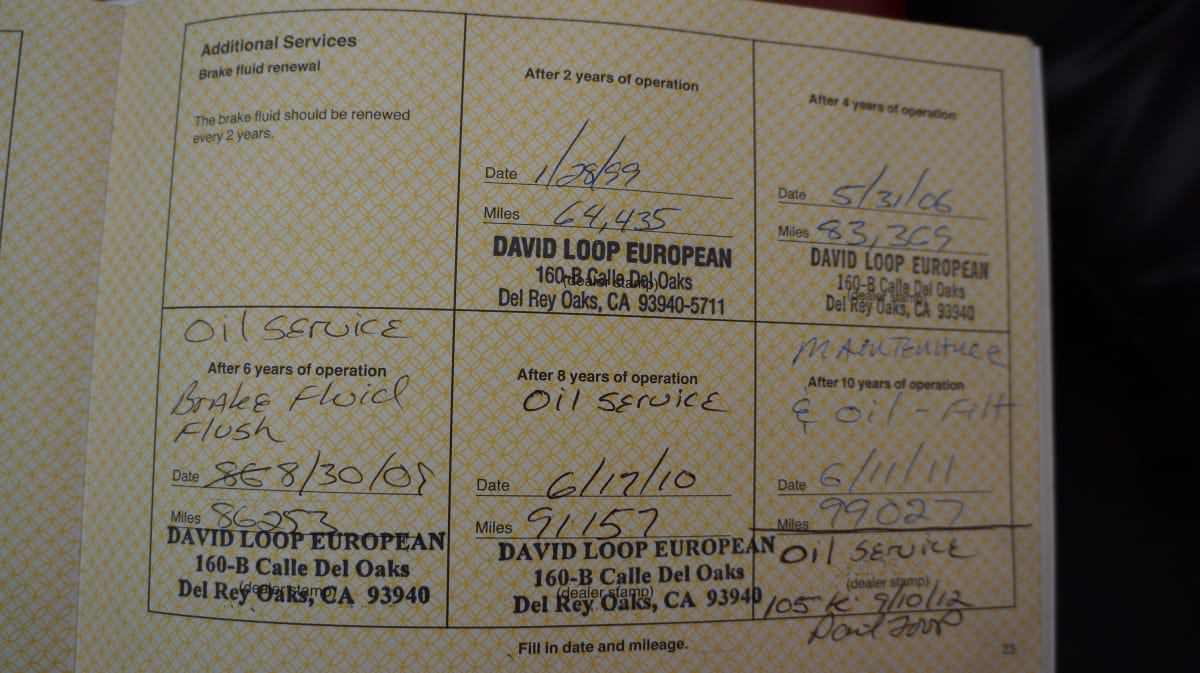 Additional Services
Brake fluid renewal
The brake fluid should be renewed
every 2 years.
After 2 years of operation
Date 1/28/99
Miles 64,435
DAVID LOOP EUROPEAN
160-B Calle Del Oaks
(dealer stamp)
Del Rey Oaks, CA 93940-5711
After 4 years of operation
Date 5/31/06
Miles 83,369
DAVID LOOP EUROPEAN
160-B Calle Del Oaks
(dealer stamp)
Del Rey Oaks, CA 93940
Oil SERVICE
After 6 years of operation
BRAKE Fluid
Flush
Date 8/30/09
Miles 86253
DAVID LOOP EUROPEAN
160-B Calle Del Oaks
(dealer stamp)
Del Rey Oaks, CA 93940
After 8 years of operation
Oil SERVICE
Date 6/17/10
Miles 91157
DAVID LOOP EUROPEAN
160-B Calle Del Oaks
(dealer stamp)
Del Rey Oaks, CA 93940
MAINTENANCE
After 10 years of operation
& Oil - Filt
Date 6/11/11
Miles 99027
Oil SERVICE
(dealer stamp)
105K 9/10/12
David Loop
Fill in date and mileage.
23